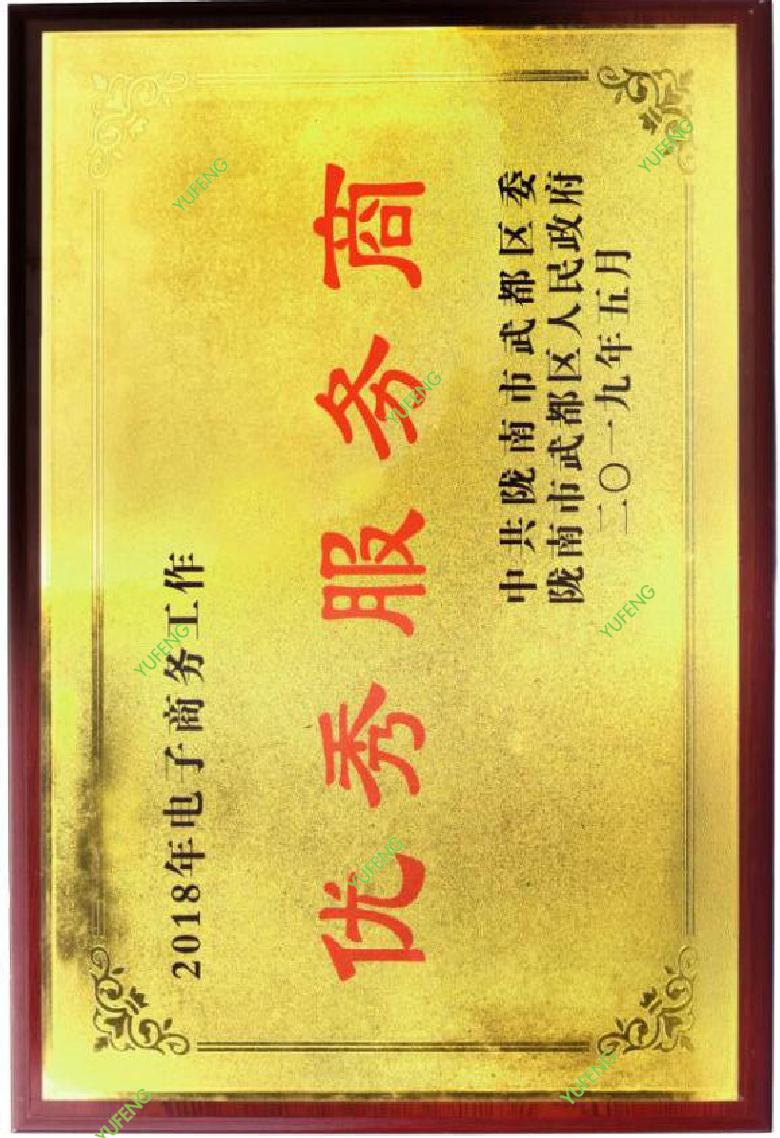 2018年电子商务工作
优秀服务商
中共陇南市武都区委
陇南市武都区人民政府
二〇一九年五月
YUFENG
YUFENG
YUFENG
YUFENG
YUFENG
YUFENG
YUFENG
YUFENG